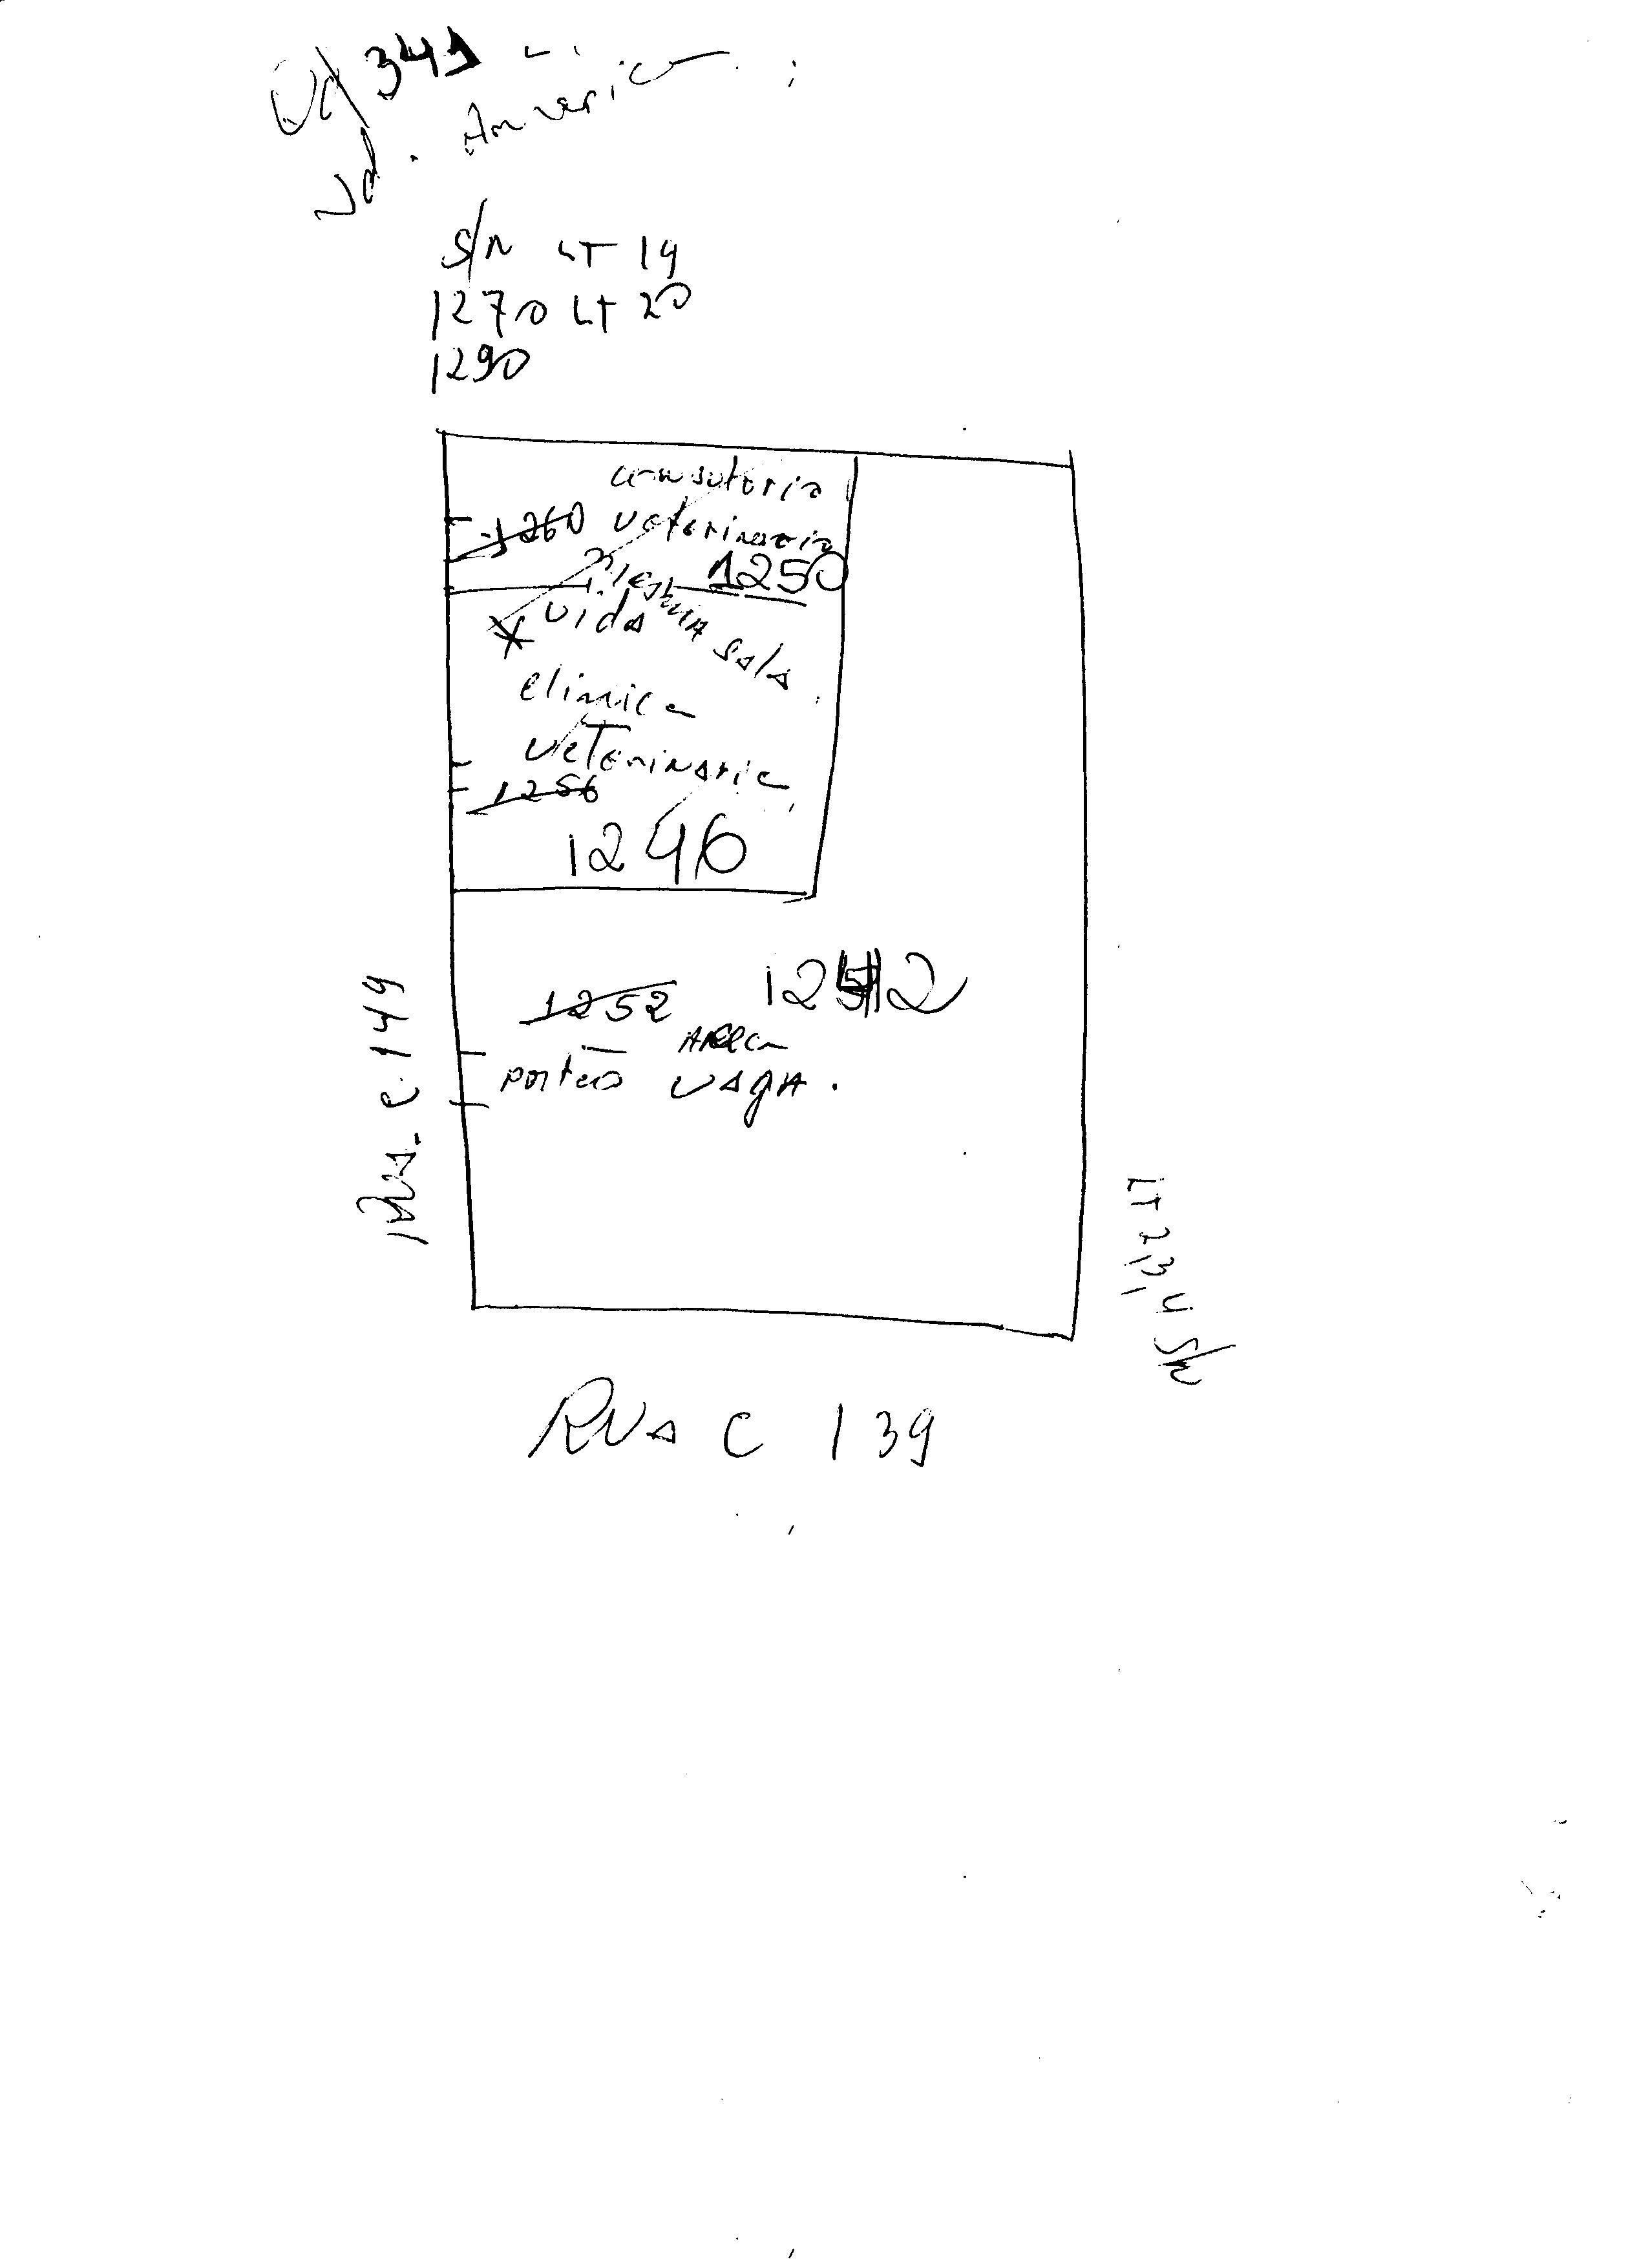 Qd 349
Jd. America
S/N LT 19
1270 LT 20
1290
consutorio
1260 veterinario
1250
vida
sala
clinica
veterinaria
1256
1246
1252 1242
Area
portão vaga.
Rua C.149
LT 2,3,4 S/N
RUA C 139